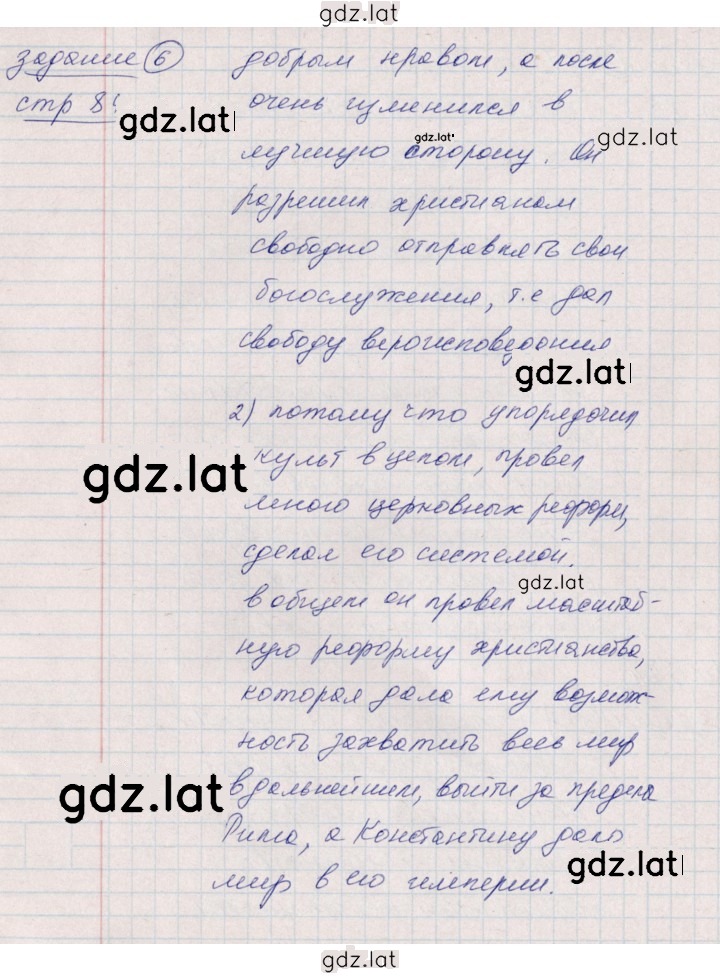 gdz.lat
задание 6
стр 8!
gdz.lat
добрым нравом, а после
очень изменился в
gdz.lat
gdz.lat
лучшую сторону. Он
разрешил христианам
свободно отправлять свои
богослужения, т.е дал
свободу вероисповедания
gdz.lat
2) потому что упорядочил
культ в целом, провел
gdz.lat
много церковных реформ,
сделал его системой.
gdz.lat
в общем он провел масштаб-
ную реформу христианства,
которая дала ему возмож-
ность захватить весь мир
gdz.lat
в дальнейшем, выйти за предела
Рима, а Константину дало
мир в его империи.
gdz.lat
gdz.lat